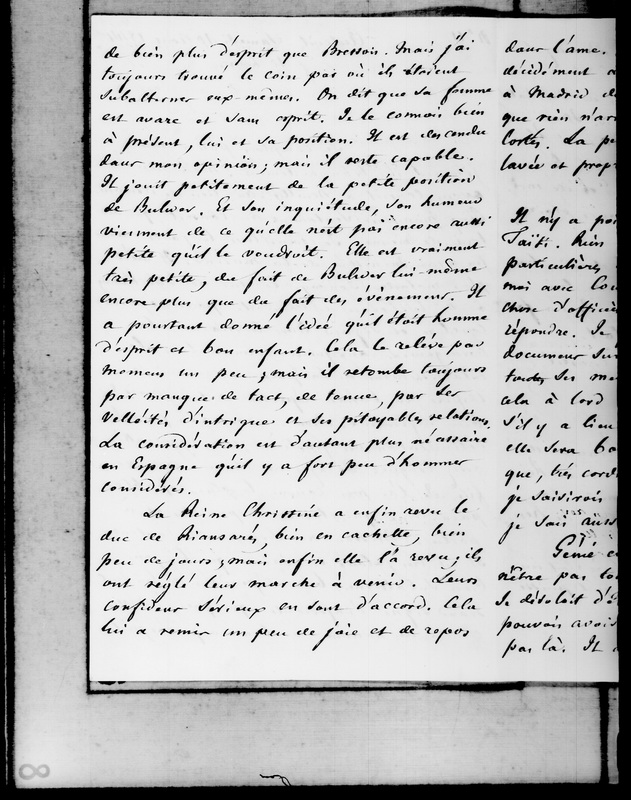 de bien plus d'esprit que Bresson. Mais j'ai
toujours trouvé le coin par où ils étoient
subalternes eux mêmes. On dit que sa femme
est avare et sans esprit. Je le connois bien
à présent, lui et sa position. Il est descendu
dans mon opinion; mais il reste capable.
Il jouit petitement de la petite position
de Bulwer. Et son inquiétude, son humeur
viennent de ce qu'elle n'est pas encore aussi
petite qu'il le voudroit. Elle est vraiment
très petite, du fait de Bulwer lui même
encore plus que du fait des événemens. Il
a pourtant donné l'idée qu'il était homme
d'esprit et bon enfant. Cela le relève par
momens un peu; mais il retombe toujours
par manque de tact, de tenue, par ses
velléités d'intrigue et ses pitoyables relations.
La considération est d'autant plus nécessaire
en Espagne qu'il y a fort peu d'hommes
considérés.
La Reine Christine a enfin revu le
duc de Rianzarès, bien en cachette, bien
peu de jours; mais enfin elle l'a revu; ils
ont réglé leur marche à venir. Leurs
confidens sérieux en sont d'accord. Cela
lui a remis un peu de joie et de repos
dans l'âme.
décidément
à Madrid
que rien n'a
Cortès. La
lavée et prop
Il n'y a
Taïti. Rien
particulières
moi avec
chose d'
répondre. Je
documens
toutes ses
cela à lord
s'il y a lieu
elle sera
que, très cord
je saisirois
je sais auss
Génie
n'être pas
Se désoloit
pouvois
par là. Il